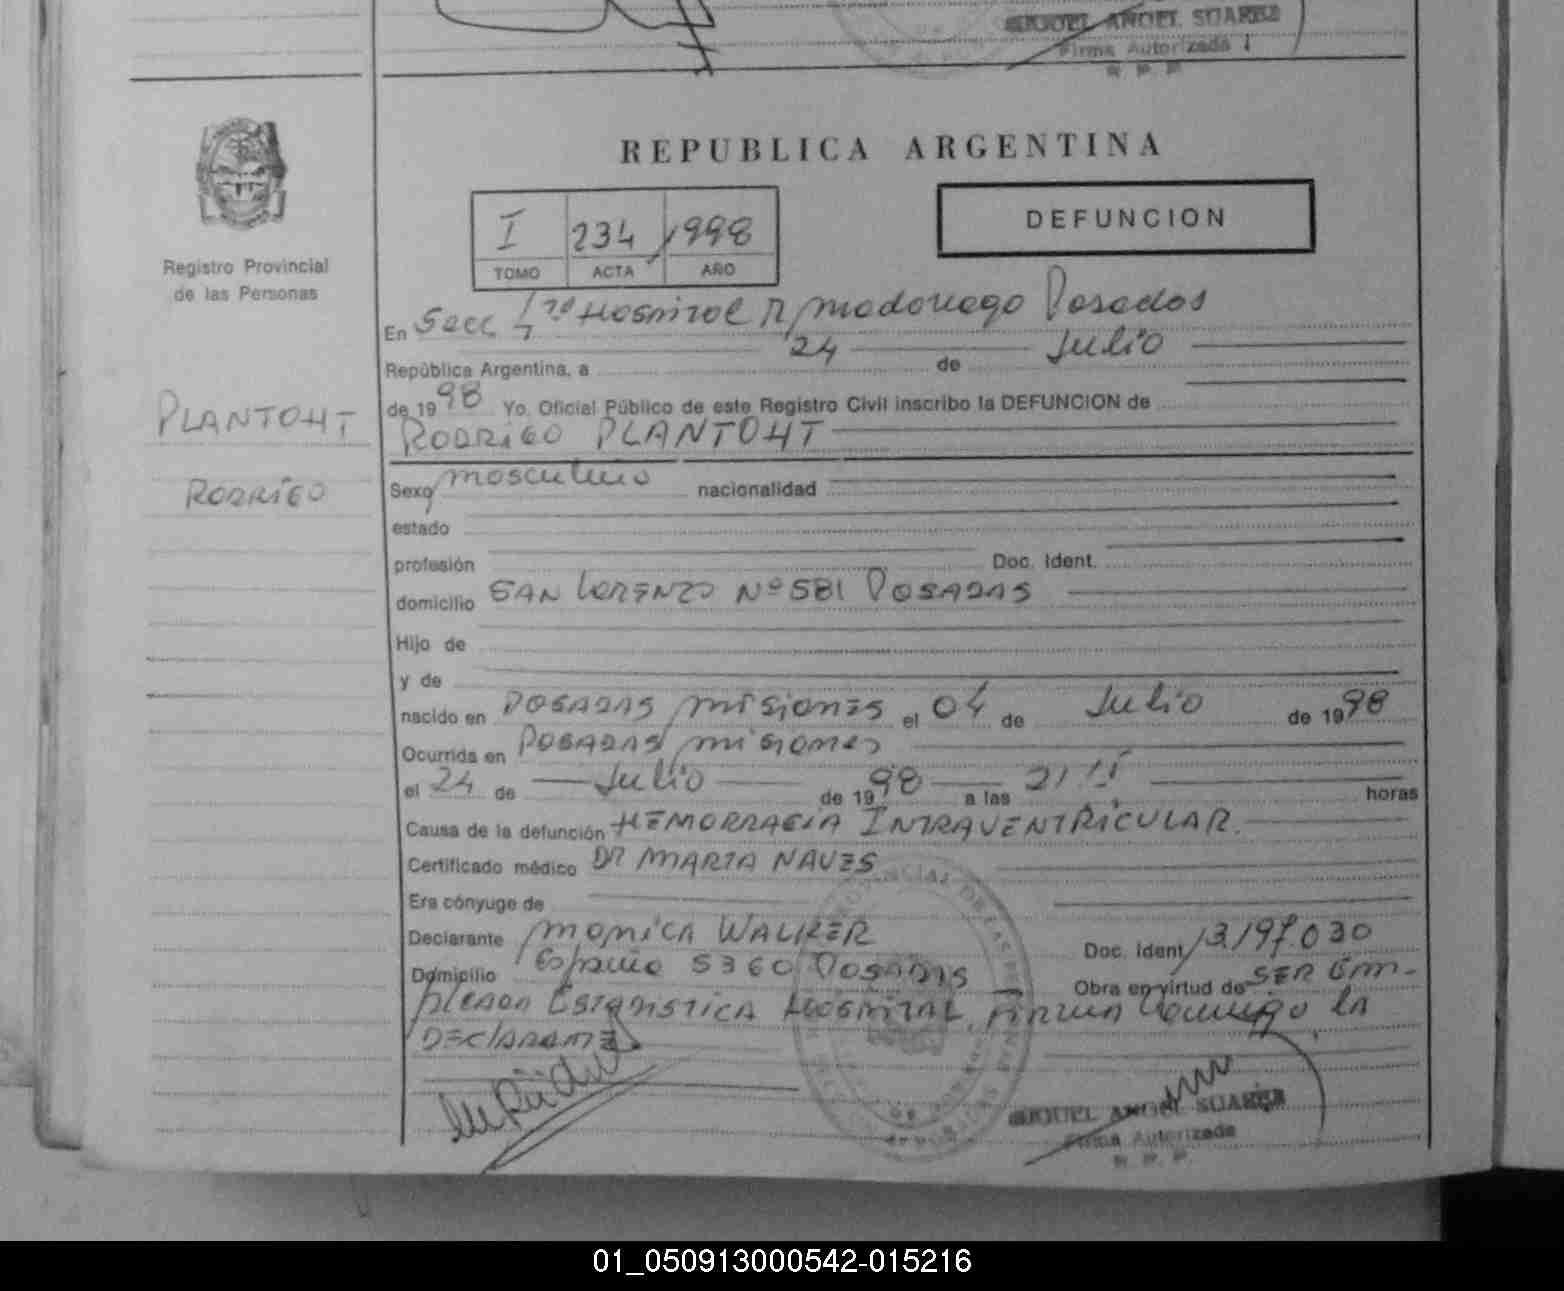 MIGUEL ANGEL SUAREZ
Firma Autorizada
R. P. P.
REPUBLICA ARGENTINA
I 234 1998
TOMO ACTA AÑO
DEFUNCION
Registro Provincial
de las Personas
En Secc 1ra Hospital R Madariaga Posadas
República Argentina, a 24 de Julio
de 1998 Yo, Oficial Público de este Registro Civil inscribo la DEFUNCION de
PLANTOHT
RODRIGO PLANTOHT
RODRIGO
Sexo masculino nacionalidad
estado
profesión Doc. Ident.
domicilio SAN LORENZO Nº 581 POSADAS
Hijo de
y de
nacido en POSADAS MISIONES el 04 de Julio de 1998
Ocurrida en POSADAS MISIONES
el 24 de Julio de 1998 a las horas
Causa de la defunción HEMORRAGIA INTRAVENTRICULAR.
Certificado médico DR MARTA NAVES
Era cónyuge de
Declarante MONICA WALKER Doc. Ident. 13197030
Domicilio España 5360 POSADAS Obra en virtud de SER EM-
PLEADA ESTADISTICA HOSPITAL, FIRMA conmigo LA
DECLARANTE
MIGUEL ANGEL SUAREZ
Firma Autorizada
R. P. P.
01_050913000542-015216